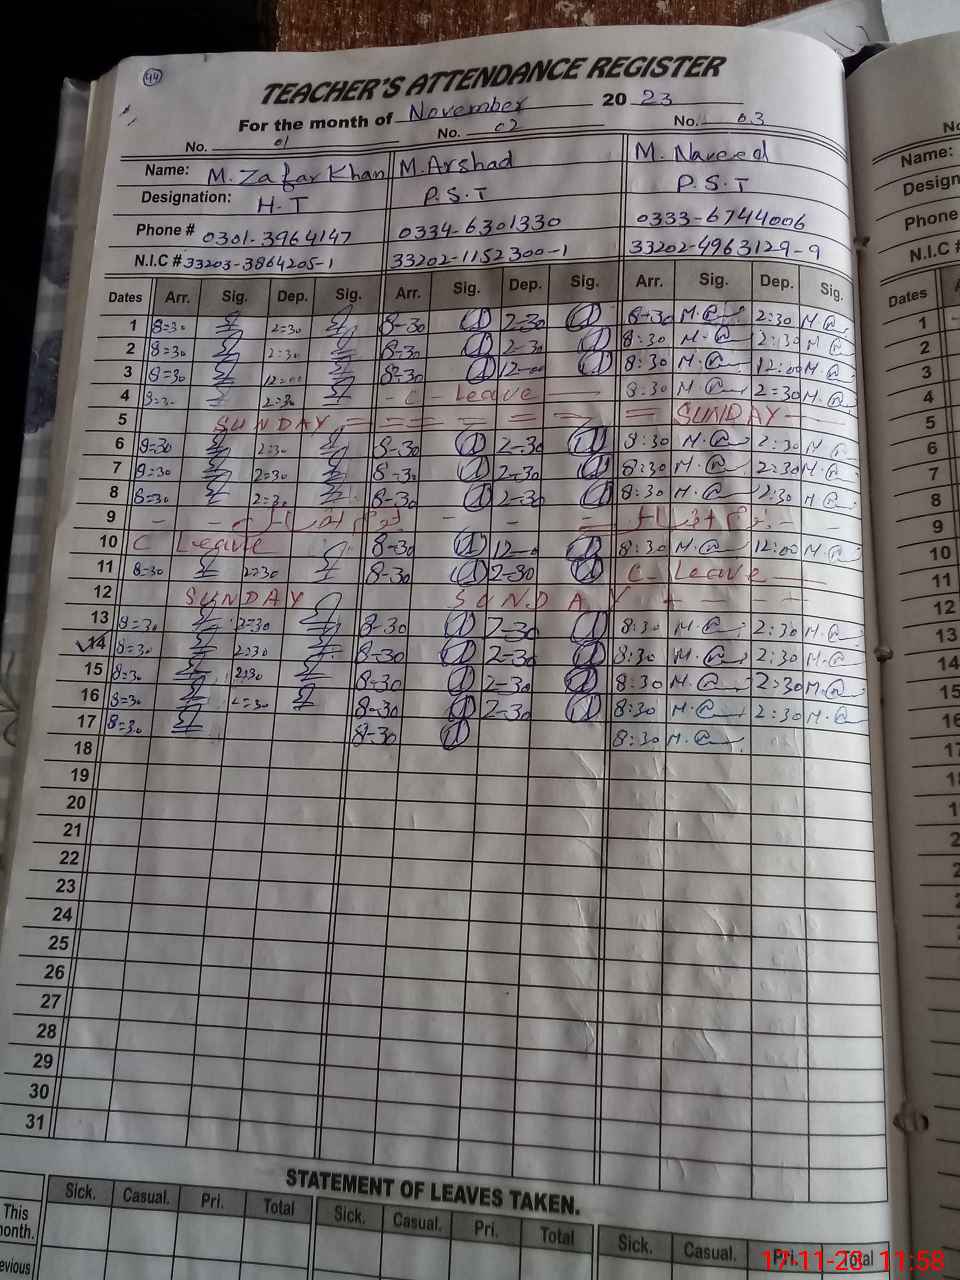 44
TEACHER'S ATTENDANCE REGISTER
For the month of November 20 23
No. 01 No. 02 No. 03
Name: M. Zafar Khan M. Arshad M. Naveed
Designation: H.T P.S.T P.S.T
Phone # 0301-3964147 0334-6301330 0333-6744006
N.I.C # 33203-3864205-1 33202-1152300-1 33202-4963129-9
Dates Arr. Sig. Dep. Sig. Arr. Sig. Dep. Sig. Arr. Sig. Dep. Sig.
1 8=30 2=30 8-30 2-30 8-30 2:30
2 8=30 2=30 8-30 2-30 8:30 2:30
3 8=30 12=00 8-30 12-00 8:30 12:00
4 8=30 2=30 - C - Leave - 8:30 2=30
5 SUNDAY = = = = = = = SUNDAY -
6 8=30 2=30 8-30 2-30 8:30 2:30
7 8=30 2=30 8-30 2-30 8:30 2:30
8 8=30 2=30 8-30 2-30 8:30 2:30
9
10 C Leave 8-30 12-00 8:30 12:00
11 8-30 2=30 8-30 2-30 C - Leave -
12 SUNDAY SUNDAY
13 8=30 2=30 8-30 2-30 8:30 2:30
14 8=30 2=30 8-30 2-30 8:30 2:30
15 8=30 2=30 8-30 2-30 8:30 2:30
16 8=30 2=30 8-30 2-30 8:30 2:30
17 8=30 8-30 8:30
18
19
20
21
22
23
24
25
26
27
28
29
30
31
STATEMENT OF LEAVES TAKEN.
Sick. Casual. Pri. Total Sick. Casual. Pri. Total Sick. Casual. Pri. Total
This
Name:
Phone #
N.I.C #
Dates
1
2
3
4
5
6
7
8
9
10
11
12
13
14
15
16
17-11-23 11:58